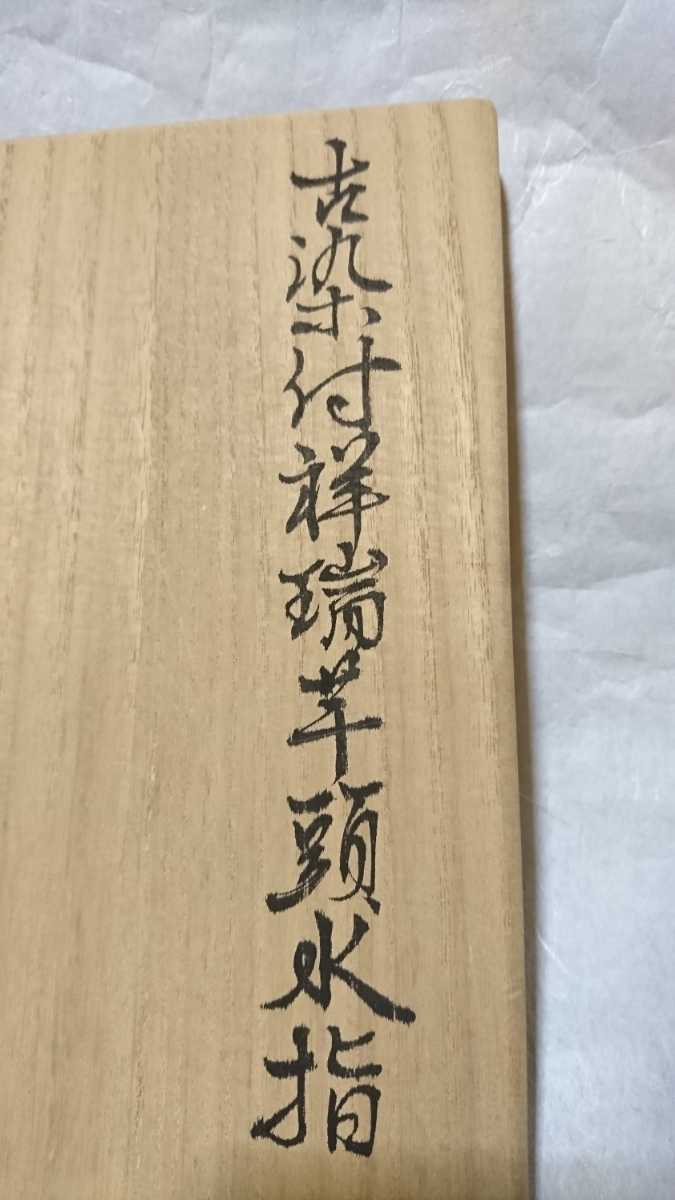 古染付祥瑞芋頭水指